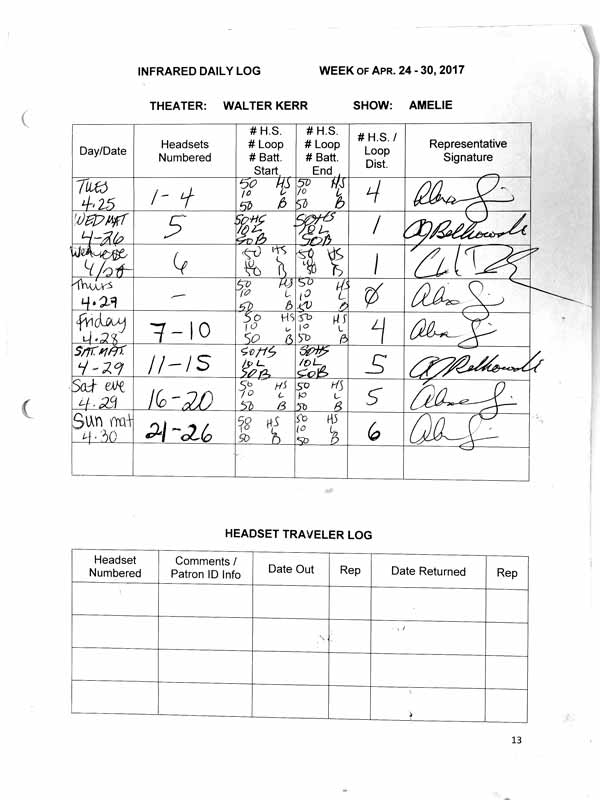 INFRARED DAILY LOG WEEK OF APR. 24 - 30, 2017
THEATER: WALTER KERR SHOW: AMELIE
Day/Date
Headsets
Numbered
# H.S.
# Loop
# Batt.
Start
# H.S.
# Loop
# Batt.
End
# H.S. /
Loop
Dist.
Representative
Signature
TUES
4.25
1-4
50 HS
10 L
50 B
50 HS
10 L
50 B
4
WED MAT
4-26
5
50HS
10L
50B
50HS
10L
50B
1
AJ Belkowski
Wed eve
6
50 HS
10 L
50 B
50 HS
10 L
50 B
1
Thurs
4.27
-
50 HS
10 L
50 B
50 HS
10 L
50 B
Ø
Friday
4.28
7-10
50 HS
10 L
50 B
50 HS
10 L
50 B
4
SAT. MAT.
4-29
11-15
50HS
10L
50B
50HS
10L
50B
5
AJ Belkowski
Sat eve
4.29
16-20
50 HS
10 L
50 B
50 HS
10 L
50 B
5
Sun mat
4.30
21-26
50 HS
10 L
50 B
50 HS
10 L
50 B
6
HEADSET TRAVELER LOG
Headset
Numbered
Comments /
Patron ID Info
Date Out
Rep
Date Returned
Rep
13